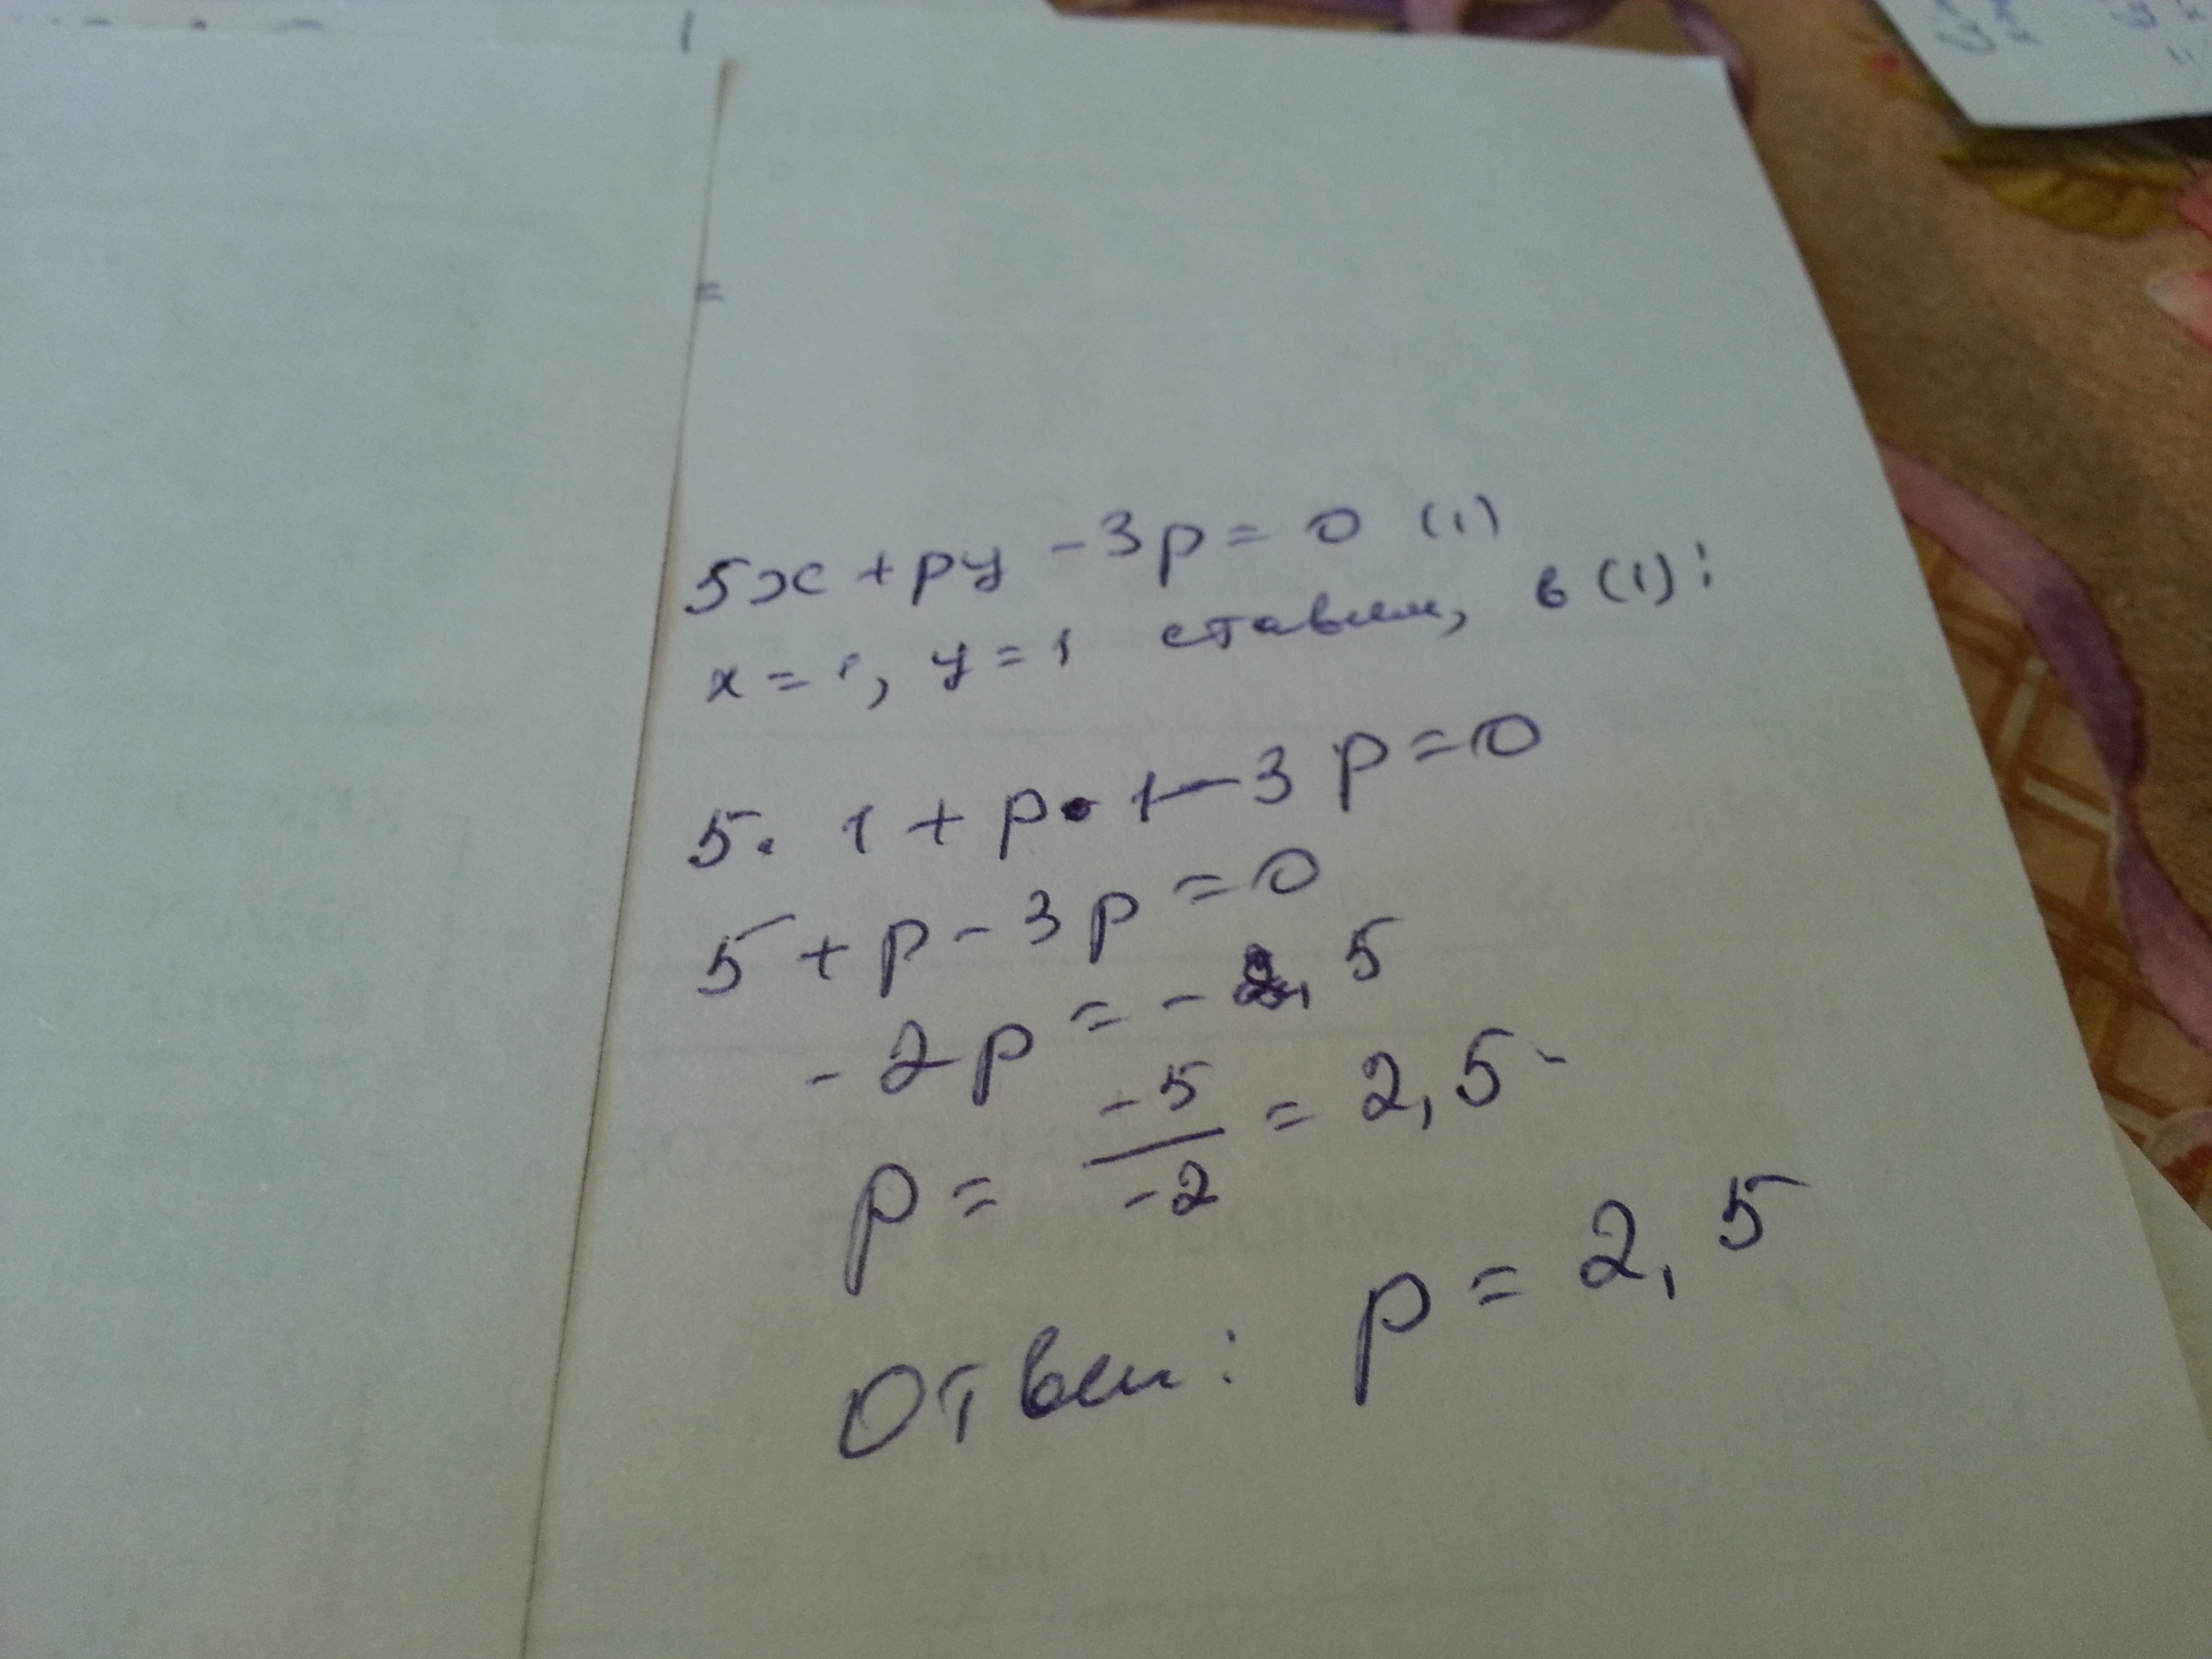 =
5x + py - 3p = 0 (1)
x = 1, y = 1 ставим, в (1):
5 · 1 + p · 1 - 3p = 0
5 + p - 3p = 0
-2p = - 5
p = -5/-2 = 2,5
Ответ: p = 2,5